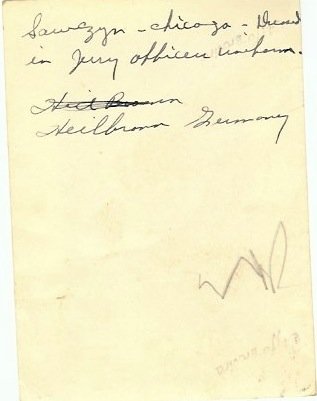 Sawczyn - Chicago - Dressed
in Jerry officer uniform.
Heil Bronn
Heilbronn Germany